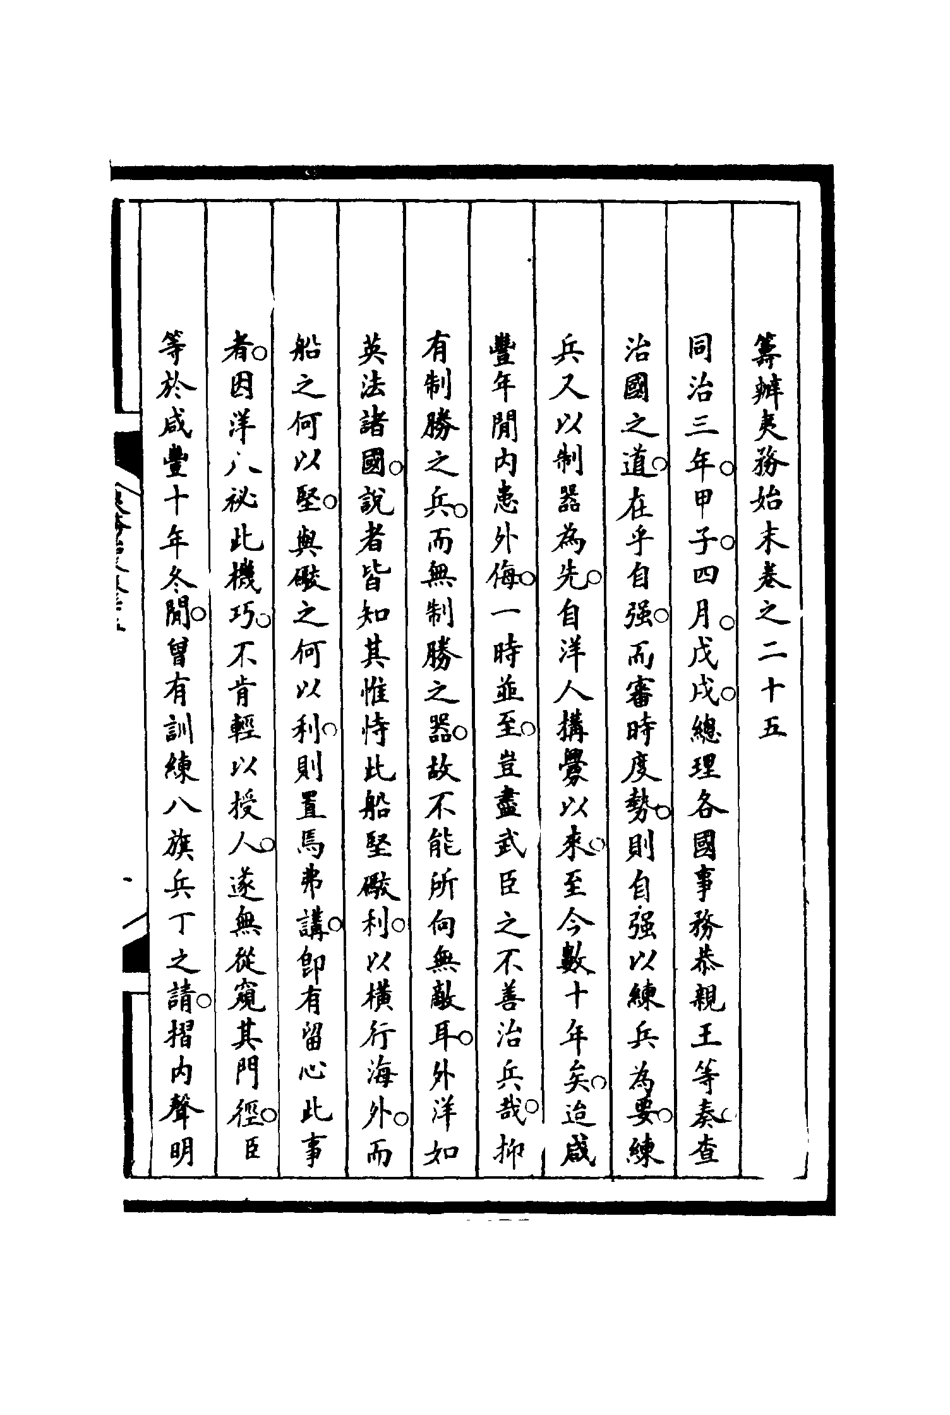 籌辦夷務始末卷之二十五
同治三年。甲子。四月。戊戌。總理各國事務恭親王等奏。查
治國之道。在乎自强。而審時度勢。則自强以練兵為要。練
兵又以制器為先。自洋人搆釁以來。至今數十年矣。迨咸
豐年閒內患外侮。一時並至。豈盡武臣之不善治兵哉。抑
有制勝之兵。而無制勝之器。故不能所向無敵耳。外洋如
英法諸國。說者皆知其惟恃此船堅礮利。以橫行海外。而
船之何以堅。與礮之何以利。則置焉弗講。卽有留心此事
者。因洋人祕此機巧。不肯輕以授人。遂無從窺其門徑。臣
等於咸豐十年冬閒。曾有訓練八旗兵丁之請。摺內聲明